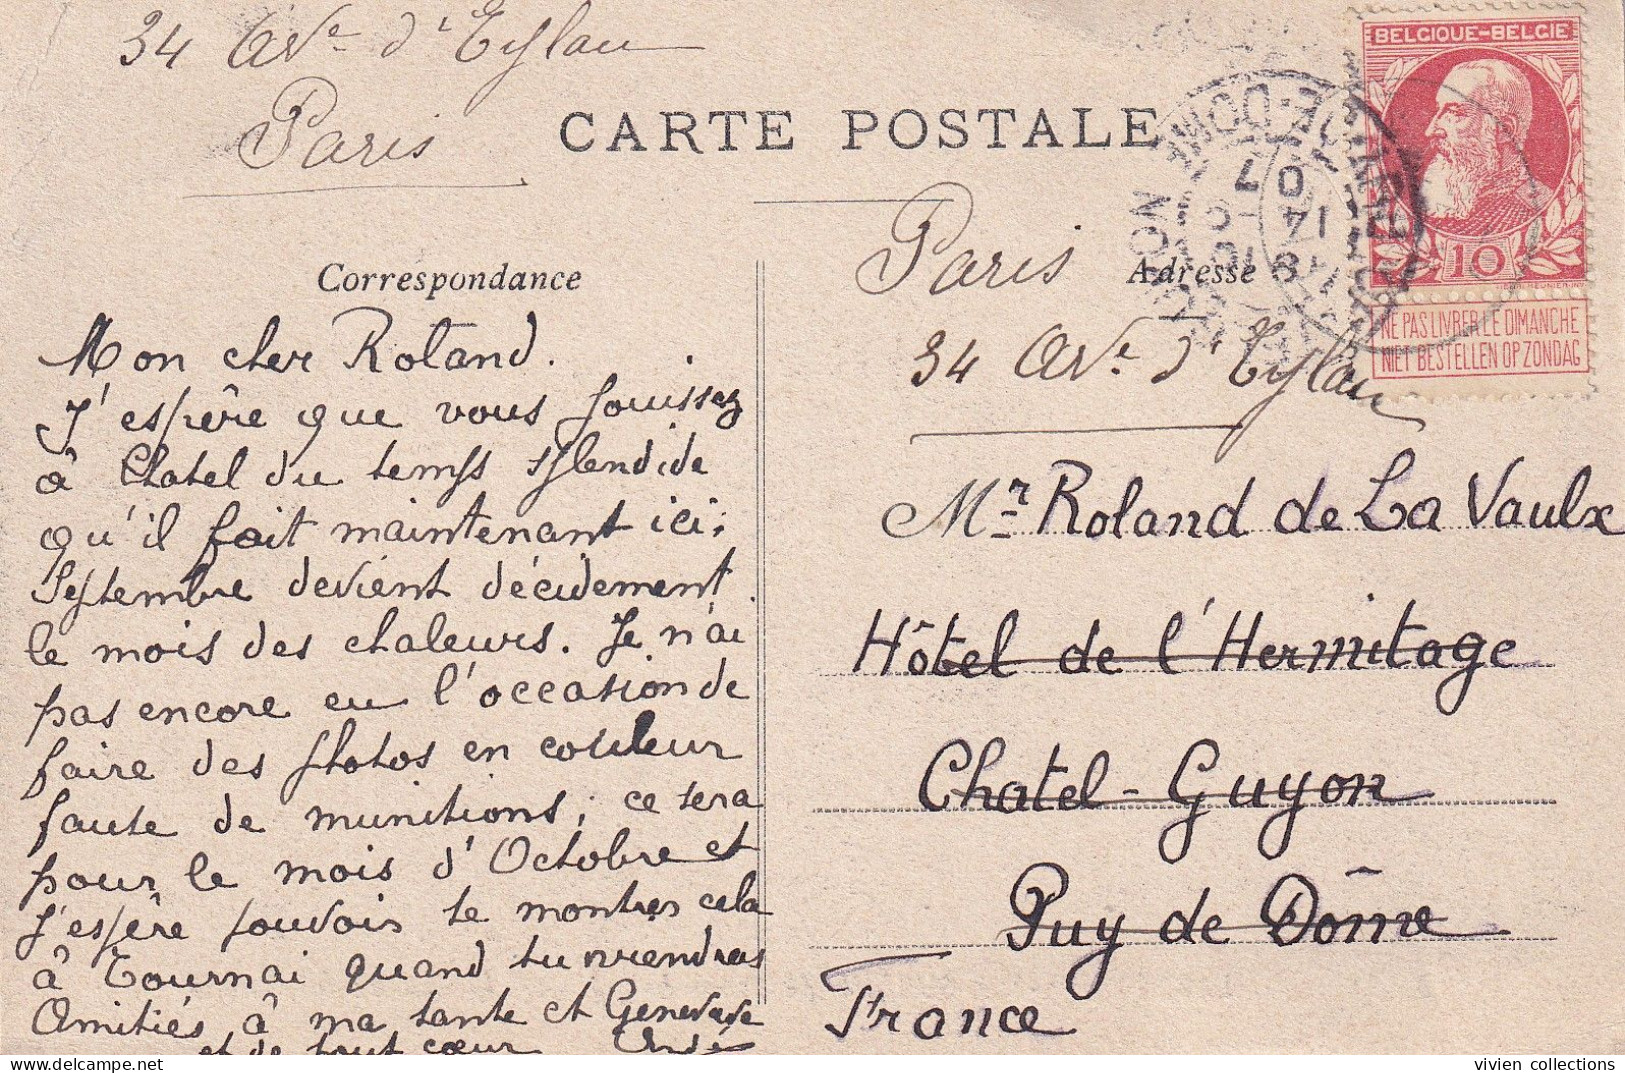 34 Ave d'Eylau
Paris
CARTE POSTALE
BELGIQUE-BELGIE
10
NE PAS LIVRER LE DIMANCHE
NIET BESTELLEN OP ZONDAG
Correspondance
Adresse
Mon cher Roland.
J'espère que vous jouissez
à Chatel du temps splendide
qu'il fait maintenant ici.
Septembre devient décidement
le mois des chaleurs. Je n'ai
pas encore eu l'occasion de
faire des photos en couleur
faute de munitions; ce sera
pour le mois d'Octobre et
j'espère pouvoir te montrer cela
à Tournai quand tu viendras
Amitiés à ma tante et Geneviève
et de tout cœur André
Paris
34 Ave d'Eylau
Mr Roland de La Vaulx
Hôtel de l'Hermitage
Chatel-Guyon
Puy de Dôme
France
vivien collections